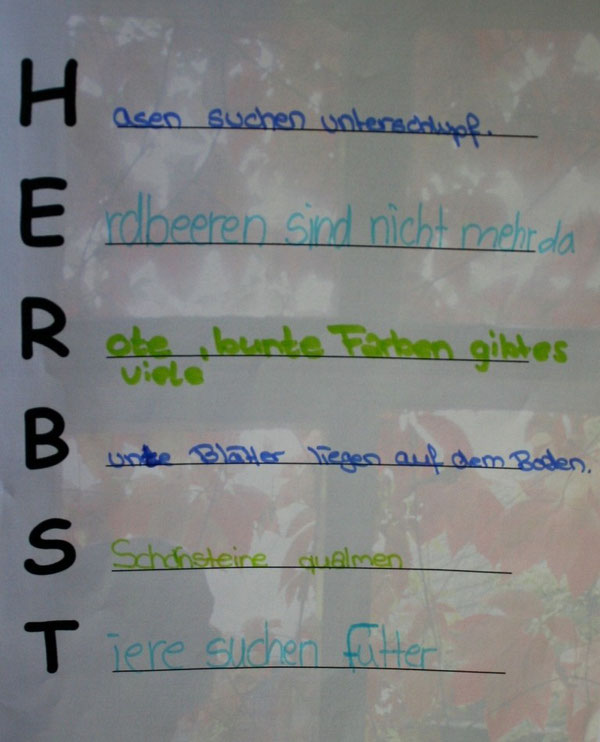 H asen suchen unterschlupf.
E rdbeeren sind nicht mehr da
R ote, bunte Farben gibt es
viele
B unte Blätter liegen auf dem Boden.
S Schornsteine qualmen
T iere suchen fūtter